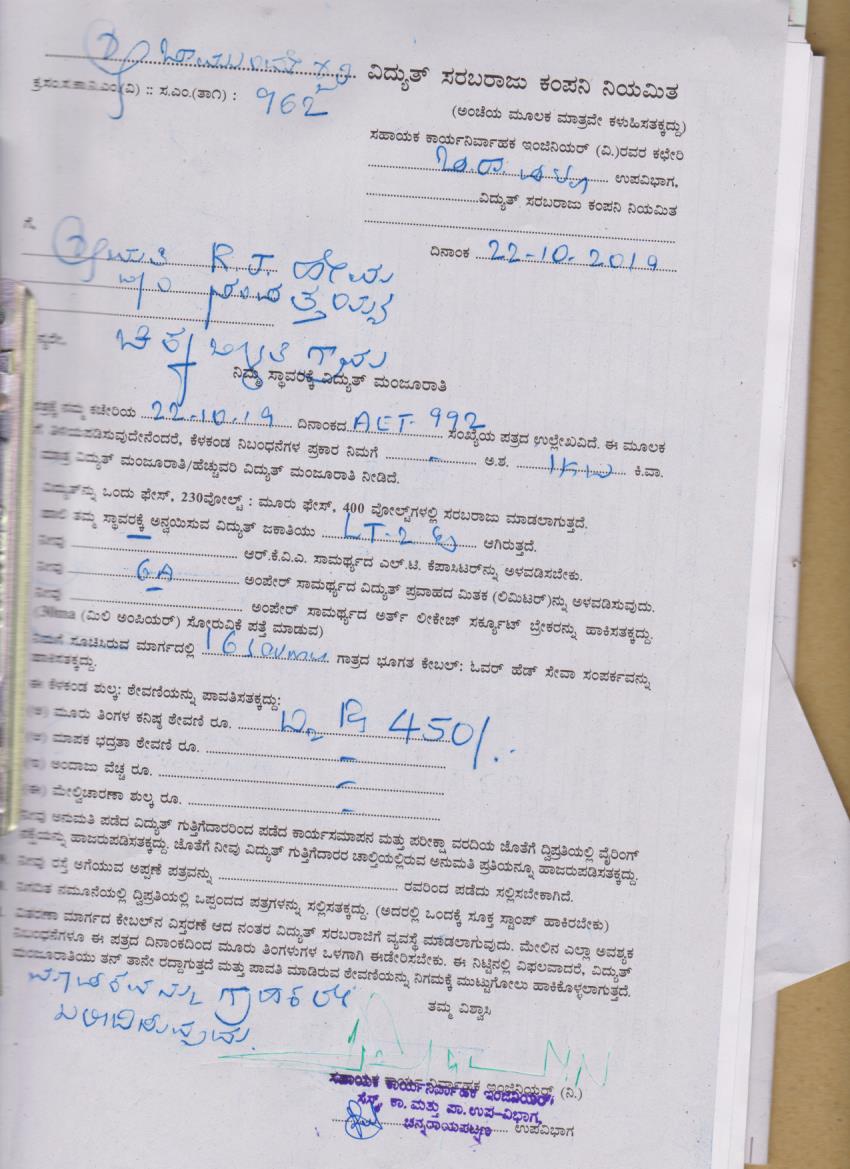 ವಿದ್ಯುತ್ ಸರಬರಾಜು ಕಂಪನಿ ನಿಯಮಿತ
ಕ್ರಸಂ.ಸ.ಕಾ.ನಿ.ಎಂ.(ವಿ) :: ಸ.ಎಂ.(ತಾ೧) : 962
(ಅಂಚೆಯ ಮೂಲಕ ಮಾತ್ರವೇ ಕಳುಹಿಸತಕ್ಕದ್ದು)
ಸಹಾಯಕ ಕಾರ್ಯನಿರ್ವಾಹಕ ಇಂಜಿನಿಯರ್ (ವಿ.)ರವರ ಕಛೇರಿ
ಉಪವಿಭಾಗ,
ವಿದ್ಯುತ್ ಸರಬರಾಜು ಕಂಪನಿ ನಿಯಮಿತ
ಗೆ,
ದಿನಾಂಕ 22-10-2019
ಶ್ರೀಮತಿ R.J. ಹೇಮ
ಗ್ರಾಮ
ನಿಮ್ಮ ಸ್ಥಾವರಕ್ಕೆ ವಿದ್ಯುತ್ ಮಂಜೂರಾತಿ
ನಮ್ಮ ಕಚೇರಿಯ 22-10-19 ದಿನಾಂಕದ AET-992 ಸಂಖ್ಯೆಯ ಪತ್ರದ ಉಲ್ಲೇಖವಿದೆ. ಈ ಮೂಲಕ
ತಿಳಿಯಪಡಿಸುವುದೇನೆಂದರೆ, ಕೆಳಕಂಡ ನಿಬಂಧನೆಗಳ ಪ್ರಕಾರ ನಿಮಗೆ - ಅ.ಶ. 1KW ಕಿ.ವಾ.
ಮಾತ್ರ ವಿದ್ಯುತ್ ಮಂಜೂರಾತಿ/ಹೆಚ್ಚುವರಿ ವಿದ್ಯುತ್ ಮಂಜೂರಾತಿ ನೀಡಿದೆ.
ವಿದ್ಯುತ್‌ನ್ನು ಒಂದು ಫೇಸ್, 230ವೋಲ್ಟ್ : ಮೂರು ಫೇಸ್, 400 ವೋಲ್ಟ್‌ಗಳಲ್ಲಿ ಸರಬರಾಜು ಮಾಡಲಾಗುತ್ತದೆ.
ಹಾಲಿ ತಮ್ಮ ಸ್ಥಾವರಕ್ಕೆ ಅನ್ವಯಿಸುವ ವಿದ್ಯುತ್ ಜಕಾತಿಯು LT-2 ಆಗಿರುತ್ತದೆ.
ನೀವು - ಆರ್.ಕೆ.ವಿ.ಎ. ಸಾಮರ್ಥ್ಯದ ಎಲ್.ಟಿ. ಕೆಪಾಸಿಟರ್‌ನ್ನು ಅಳವಡಿಸಬೇಕು.
ನೀವು 6A ಅಂಪೇರ್ ಸಾಮರ್ಥ್ಯದ ವಿದ್ಯುತ್ ಪ್ರವಾಹದ ಮಿತಕ (ಲಿಮಿಟರ್)ನ್ನು ಅಳವಡಿಸುವುದು.
ನೀವು - ಅಂಪೇರ್ ಸಾಮರ್ಥ್ಯದ ಅರ್ತ್ ಲೀಕೇಜ್ ಸರ್ಕ್ಯೂಟ್ ಬ್ರೇಕರನ್ನು ಹಾಕಿಸತಕ್ಕದ್ದು.
(30ma (ಮಿಲಿ ಅಂಪಿಯರ್) ಸೋರುವಿಕೆ ಪತ್ತೆ ಮಾಡುವ)
ನಿಮಗೆ ಸೂಚಿಸಿರುವ ಮಾರ್ಗದಲ್ಲಿ ಗಾತ್ರದ ಭೂಗತ ಕೇಬಲ್: ಓವರ್ ಹೆಡ್ ಸೇವಾ ಸಂಪರ್ಕವನ್ನು
ಹಾಕಿಸತಕ್ಕದ್ದು.
ಈ ಕೆಳಕಂಡ ಶುಲ್ಕ: ಠೇವಣಿಯನ್ನು ಪಾವತಿಸತಕ್ಕದ್ದು:
(ಅ) ಮೂರು ತಿಂಗಳ ಕನಿಷ್ಠ ಠೇವಣಿ ರೂ. 450/-
(ಆ) ಮಾಪಕ ಭದ್ರತಾ ಠೇವಣಿ ರೂ. -
(ಇ) ಅಂದಾಜು ವೆಚ್ಚ ರೂ. -
(ಈ) ಮೇಲ್ವಿಚಾರಣಾ ಶುಲ್ಕ ರೂ. -
ನೀವು ಅನುಮತಿ ಪಡೆದ ವಿದ್ಯುತ್ ಗುತ್ತಿಗೆದಾರರಿಂದ ಪಡೆದ ಕಾರ್ಯಸಮಾಪನ ಮತ್ತು ಪರೀಕ್ಷಾ ವರದಿಯ ಜೊತೆಗೆ ದ್ವಿಪ್ರತಿಯಲ್ಲಿ ವೈರಿಂಗ್
ನಕ್ಷೆಯನ್ನು ಹಾಜರುಪಡಿಸತಕ್ಕದ್ದು. ಜೊತೆಗೆ ನೀವು ವಿದ್ಯುತ್ ಗುತ್ತಿಗೆದಾರರ ಚಾಲ್ತಿಯಲ್ಲಿರುವ ಅನುಮತಿ ಪ್ರತಿಯನ್ನೂ ಹಾಜರುಪಡಿಸತಕ್ಕದ್ದು.
ನೀವು ರಸ್ತೆ ಅಗೆಯುವ ಅಪ್ಪಣೆ ಪತ್ರವನ್ನು ರವರಿಂದ ಪಡೆದು ಸಲ್ಲಿಸಬೇಕಾಗಿದೆ.
ನಿಗದಿತ ನಮೂನೆಯಲ್ಲಿ ದ್ವಿಪ್ರತಿಯಲ್ಲಿ ಒಪ್ಪಂದದ ಪತ್ರಗಳನ್ನು ಸಲ್ಲಿಸತಕ್ಕದ್ದು. (ಅದರಲ್ಲಿ ಒಂದಕ್ಕೆ ಸೂಕ್ತ ಸ್ಟಾಂಪ್ ಹಾಕಿರಬೇಕು)
ವಿತರಣಾ ಮಾರ್ಗದ ಕೇಬಲ್‌ನ ವಿಸ್ತರಣೆ ಆದ ನಂತರ ವಿದ್ಯುತ್ ಸರಬರಾಜಿಗೆ ವ್ಯವಸ್ಥೆ ಮಾಡಲಾಗುವುದು. ಮೇಲಿನ ಎಲ್ಲಾ ಅವಶ್ಯಕ
ನಿಬಂಧನೆಗಳೂ ಈ ಪತ್ರದ ದಿನಾಂಕದಿಂದ ಮೂರು ತಿಂಗಳುಗಳ ಒಳಗಾಗಿ ಈಡೇರಿಸಬೇಕು. ಈ ನಿಟ್ಟಿನಲ್ಲಿ ವಿಫಲವಾದರೆ, ವಿದ್ಯುತ್
ಮಂಜೂರಾತಿಯು ತನ್ ತಾನೇ ರದ್ದಾಗುತ್ತದೆ ಮತ್ತು ಪಾವತಿ ಮಾಡಿರುವ ಠೇವಣಿಯನ್ನು ನಿಗಮಕ್ಕೆ ಮುಟ್ಟುಗೋಲು ಹಾಕಿಕೊಳ್ಳಲಾಗುತ್ತದೆ.
ಮಾಪಕವನ್ನು ಗ್ರಾಹಕರೇ
ತಮ್ಮ ವಿಶ್ವಾಸಿ
ಸಹಾಯಕ ಕಾರ್ಯನಿರ್ವಾಹಕ ಇಂಜಿನಿಯರ್ (ವಿ.)
ಸಹಾಯಕ ಕಾರ್ಯನಿರ್ವಾಹಕ ಇಂಜಿನಿಯರ್,
ಸೆಸ್ಕ್, ಕಾ. ಮತ್ತು ಪಾ. ಉಪ-ವಿಭಾಗ,
ಚನ್ನರಾಯಪಟ್ಟಣ
ಉಪವಿಭಾಗ